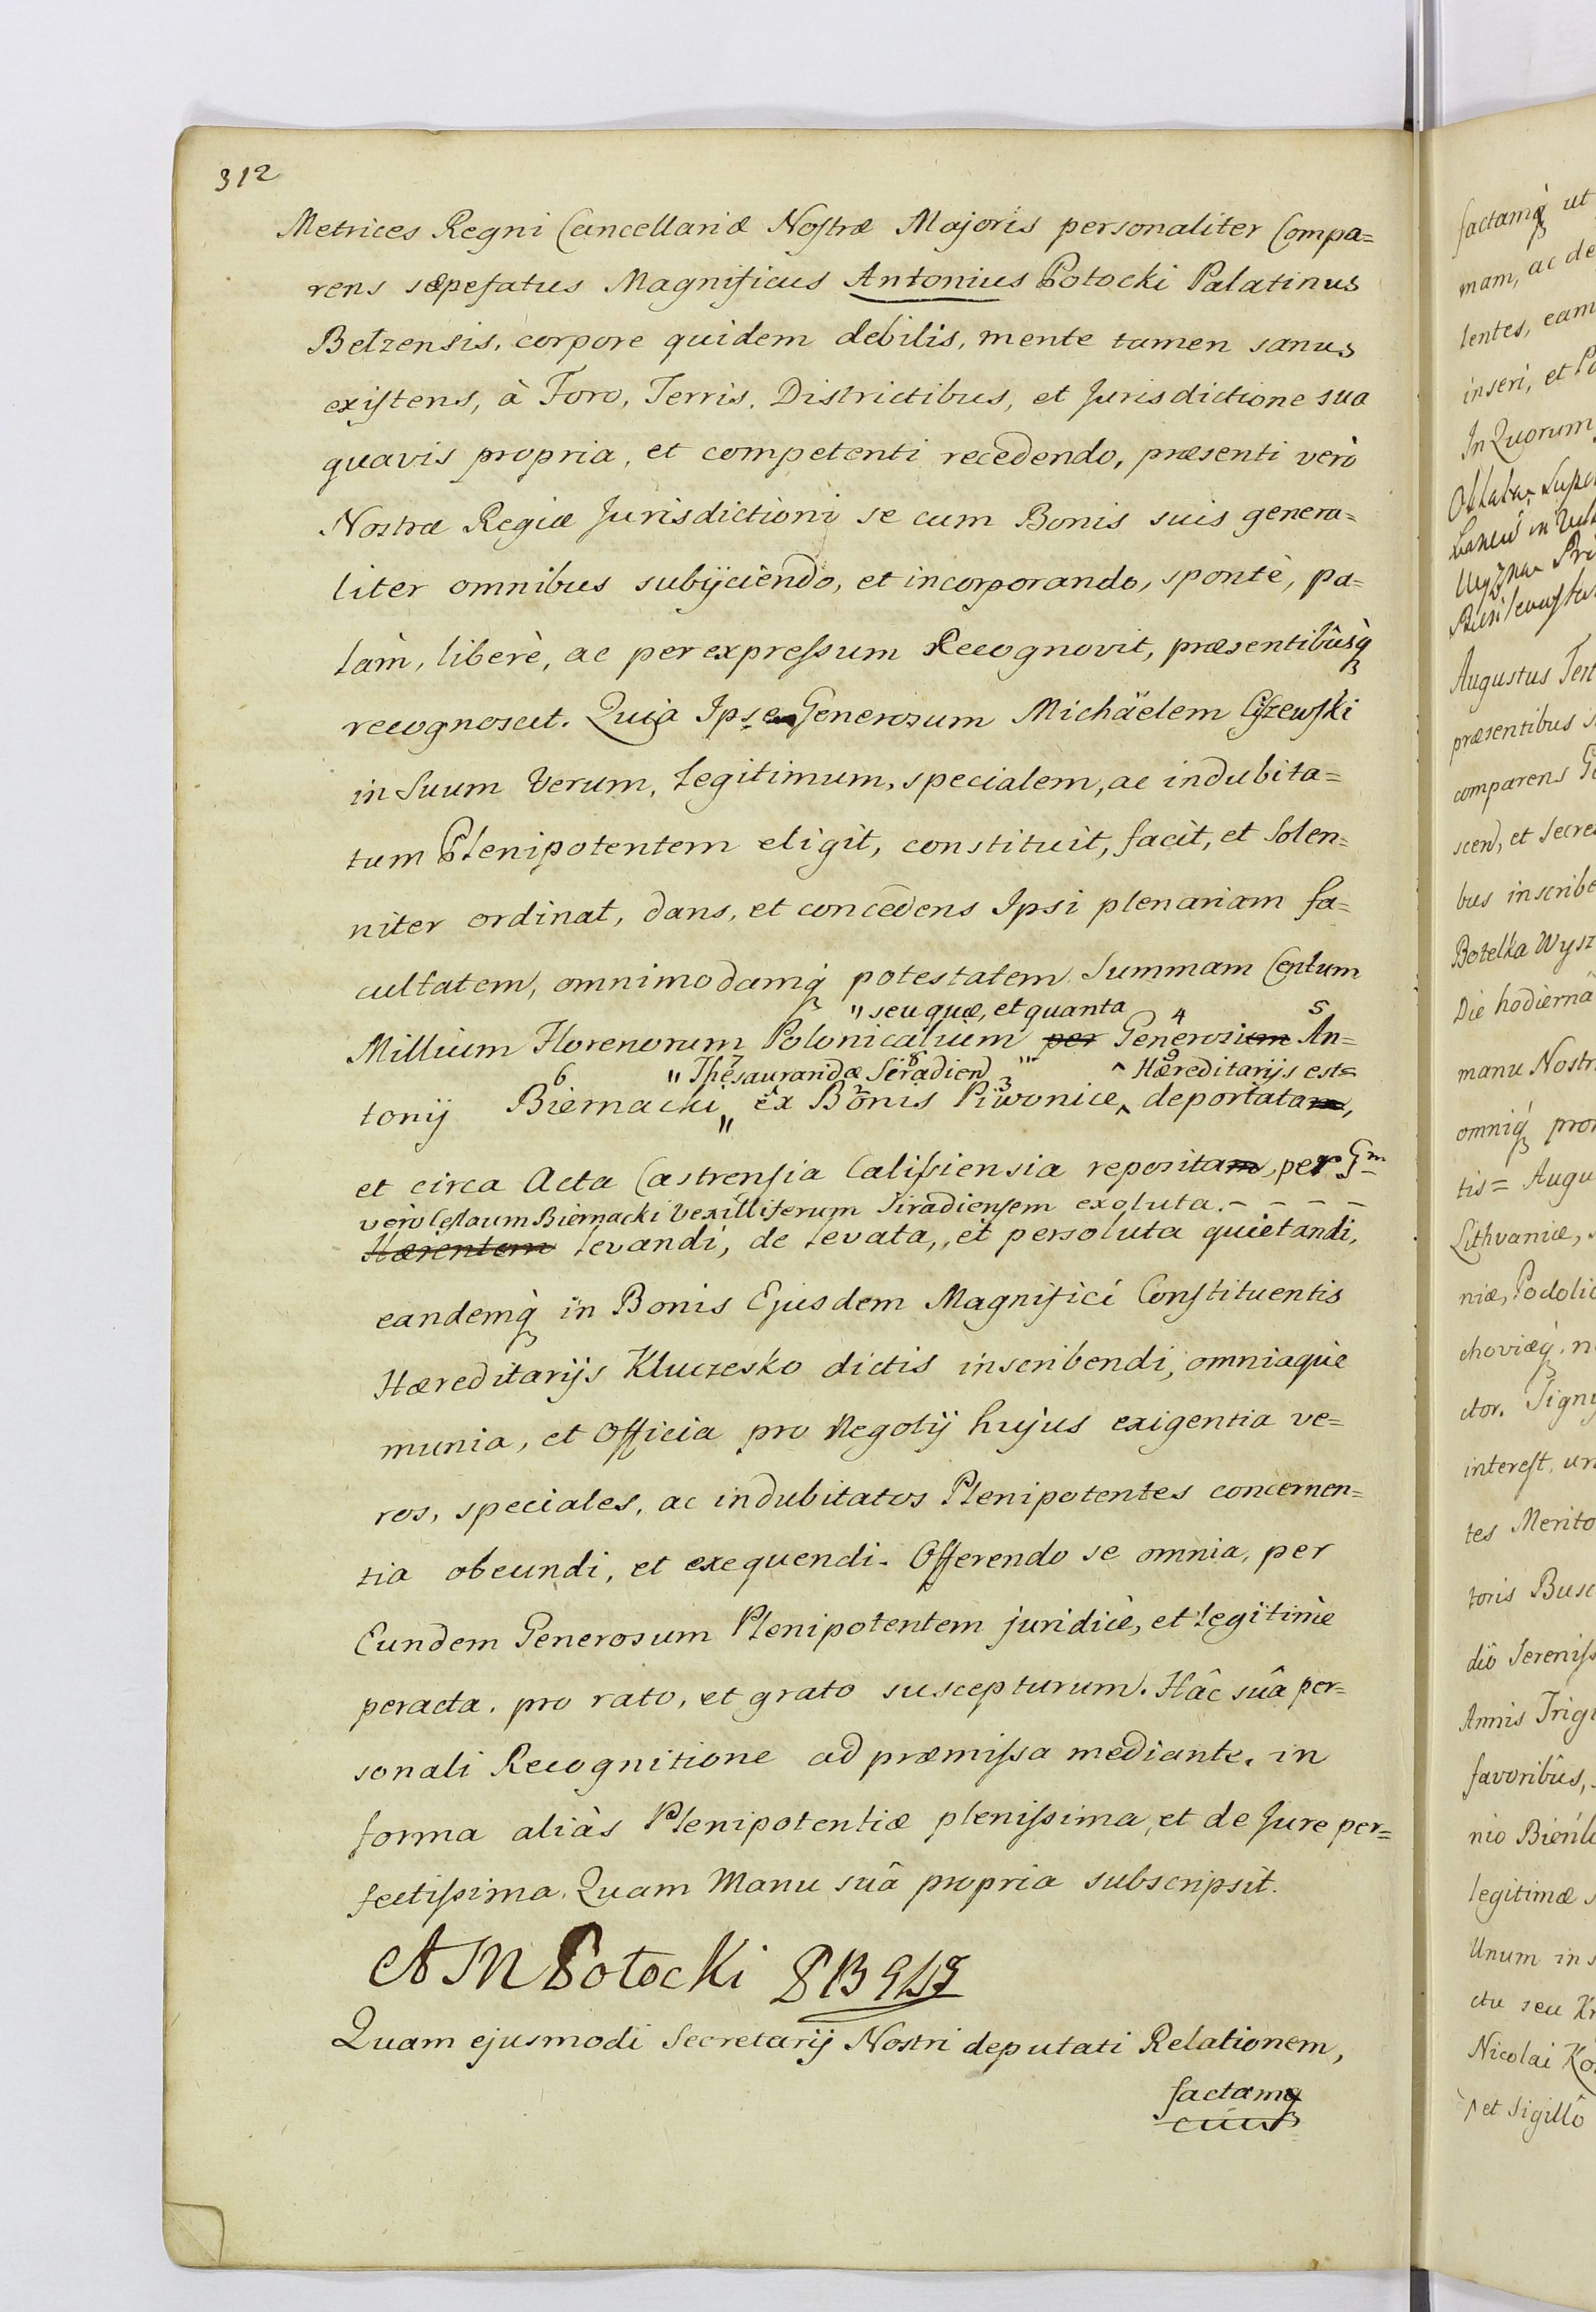 312
Metrices Regni Cancellariæ Nostræ Majoris personaliter Compa=
rens sæpefatus Magnificus Antonius Potocki Palatinus
Belzensis, corpore quidem debilis, mente tamen sanus
existens, à Foro, Terris, Districtibus, et Jurisdictione sua
quavis propria, et competenti recedendo, præsenti verò
Nostræ Regiæ Jurisdictioni se cum Bonis suis genera=
liter omnibus subijciendo, et incorporando, spontè, pa=
làm, liberè, ac per expressum Recognovit, præsentibûsq̀
recognoscit. Quia Ipse Generosum Michäelem Cyszewski
in Suum Verum, legitimum, specialem, ac indubita=
tum Plenipotentem eligit, constituit, facit, et Solen=
niter ordinat, dans, et concedens Ipsi plenariam fa=
cultatem, omnimodamq̀ potestatem Summam Centum
" seu quæ, et quanta 4 5
Millium Florenorum Polonicalium " per Generosium An=
6 " 7 Thesaurandæ Siradien 8 ^ 9 Hæreditarijs est=
tonij Biernacki " 1 ex 2 Bonis 3 Piwonice ^ deportatam,
et circa Acta Castrensia Calissiensia repositam, per Gm
verò Ceslaum Biernacki Vexilliferum Siradiensem exoluta. - - - -
Hærentem levandi, de levata, et persoluta quietandi,
eandemq̀ in Bonis Ejusdem Magnifici Constituentis
Hæreditarijs Kluczesko dictis inscribendi, omniaque
munia, et Officia pro Negotij hujus exigentia ve=
ros, speciales, ac indubitatos Plenipotentes concernen=
tia obeundi, et exequendi. Offerendo se omnia, per
Eundem Generosum Plenipotentem juridicè, et legitimè
peracta, pro rato, et grato suscepturum. Hâc suâ per=
sonali Recognitione ad præmissa mediante, in
forma aliàs Plenipotentiæ plenissima, et de Jure per=
fectissima. Quam Manu suâ propria subscripsit.
A M Potocki
Quam ejusmodi Secretarij Nostri deputati Relationem,
factamq
cuius
factamq̀ ut
mam, ac de
lentes, eam
inseri, et
In Quorum
Augustus Tert
præsentibus
comparens
scend, et Secre
bus inscribe
Botelka Wysz
Die hodierna
manu Nostr
omniq̀ pro
tis= Augu
Lithvaniæ,
niæ, Podoliæ
choviæq̀, n
ctor. Signi
interest, un
tes Merito
toris Busc
diô Sereniss
Annis Trigi
favoribûs,
nio
legitimæ
Unum in
ctu seu Kr
Nicolai Ko
et Sigillô